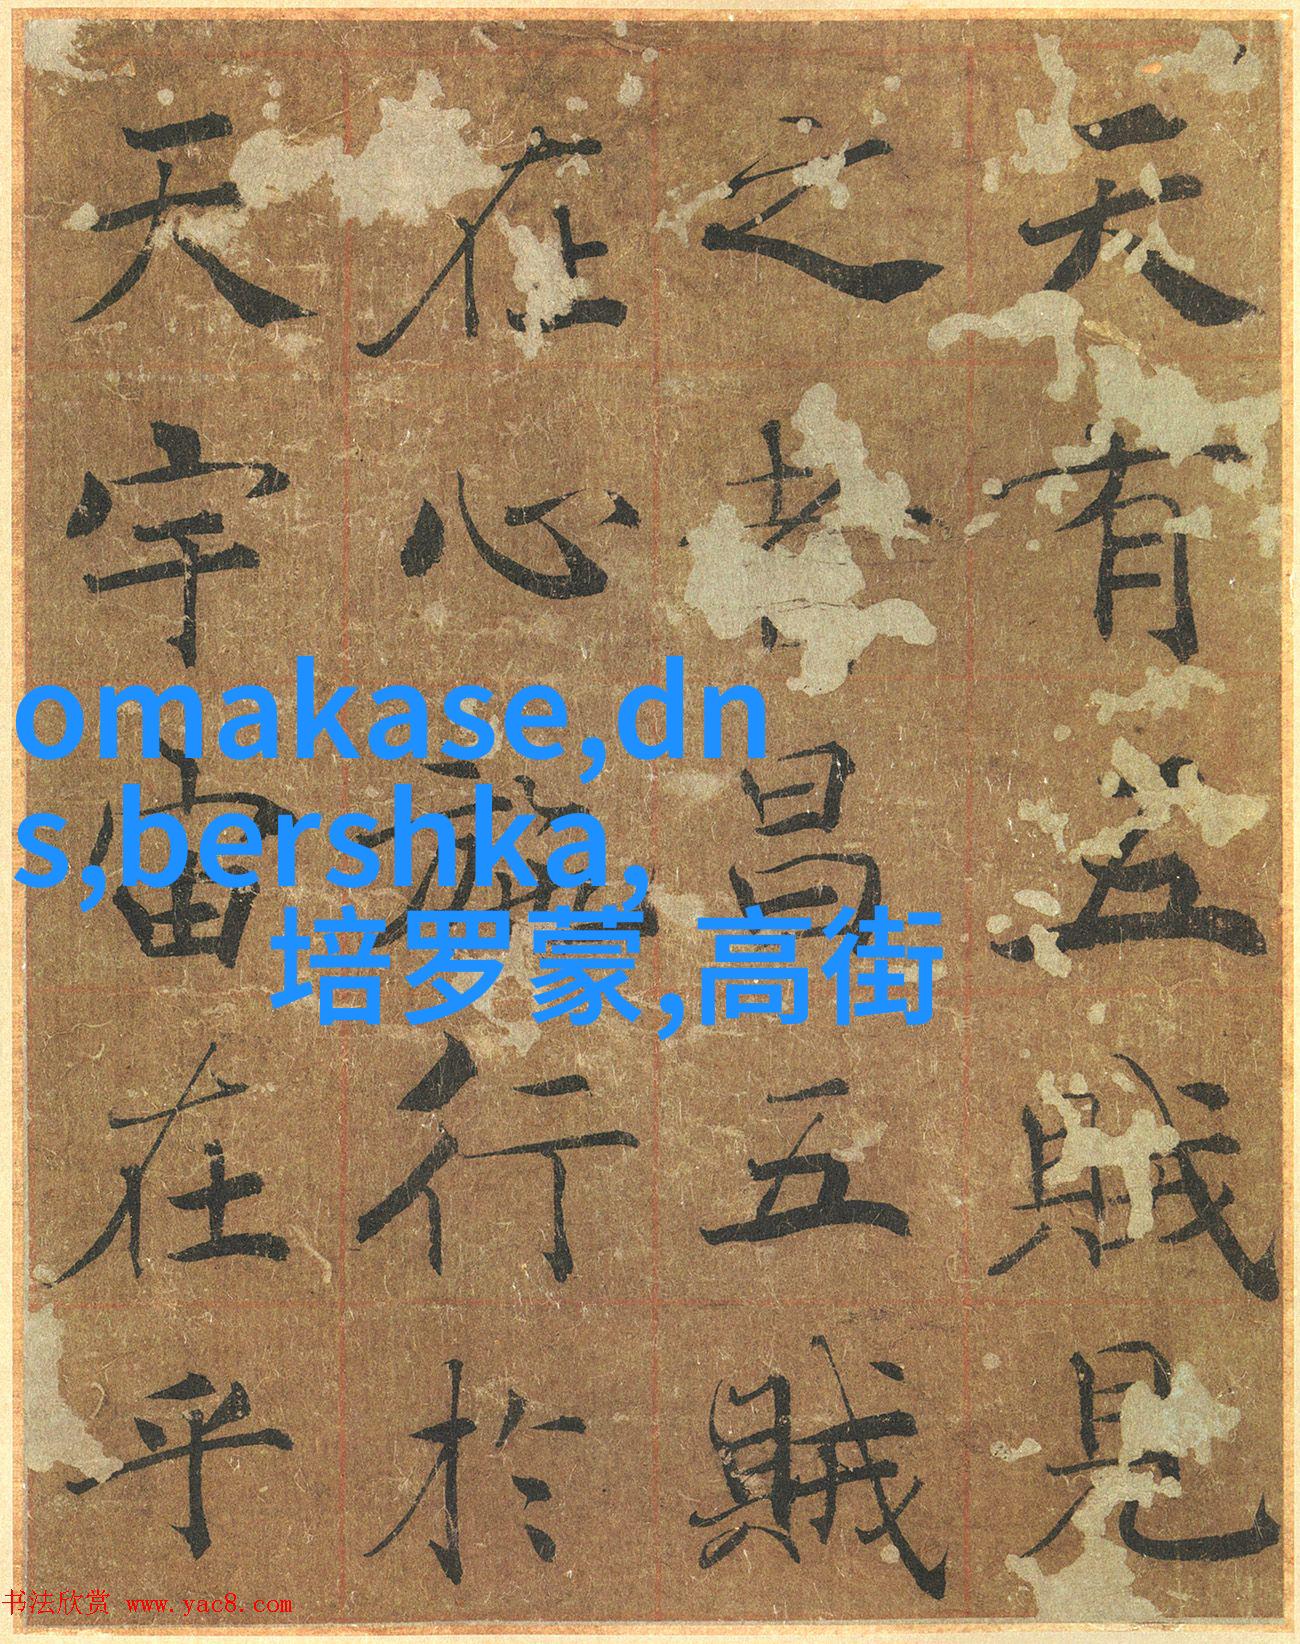 天有五賊見
之者昌五賊
在心施行於
天宇宙在乎
omakase,dn
s,bershka,
培罗蒙,高街
书法欣赏 www.yac8.com